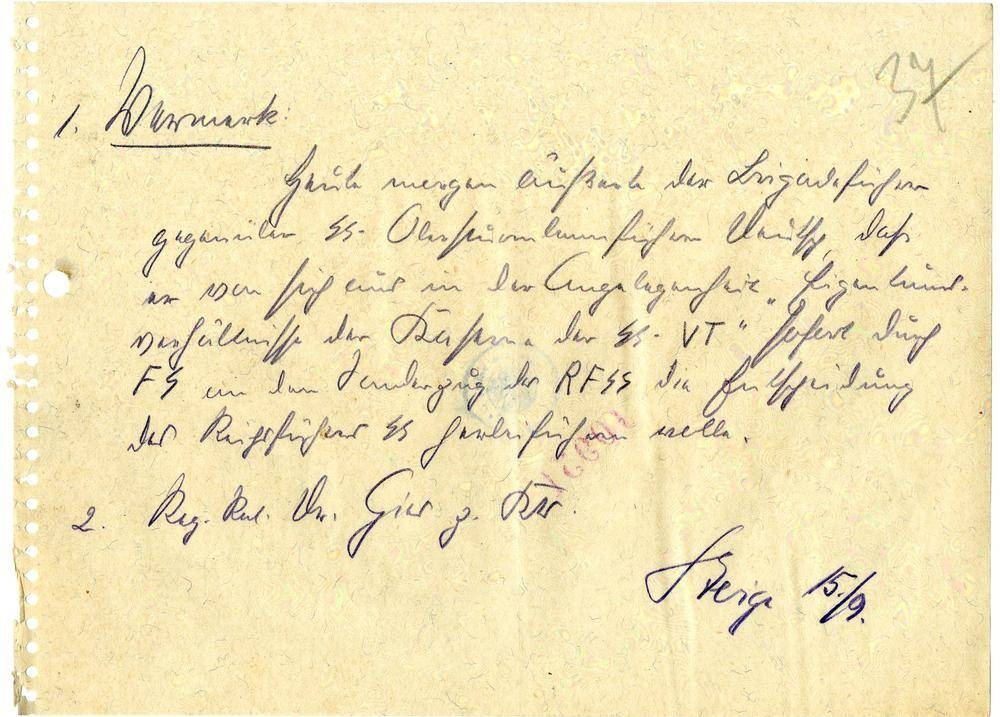 37
1. Vermerk:
Heute morgen äußerte der Brigadeführer
gegenüber SS-Obersturmbannführer Deutsch, daß
er von sich aus in der Angelegenheit „Eigentums-
verhältnisse der Kaserne der SS-VT" sofort durch
FS an den Sonderzug des RFSS die Entscheidung
des Reichsführers SS herbeiführen wolle.
2. Reg. Rat. Dr. Gies z. K.
15./9.